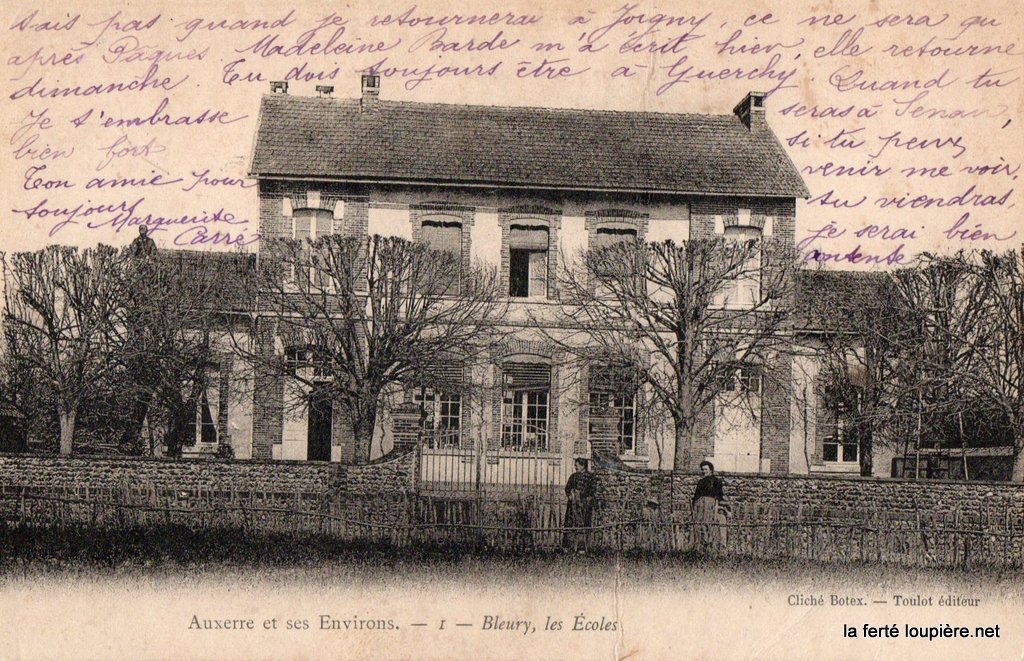 sais pas quand je retournerai à Joigny, ce ne sera qu
après Pâques. Madeleine Barde m'a écrit hier, elle retourne
dimanche. Tu dois toujours être à Guerchy. Quand tu
seras à Senan,
Je t'embrasse
si tu peux
bien fort
venir me voir,
Ton amie pour
tu viendras,
toujours
Marguerite
je serai bien
Carré
contente
Auxerre et ses Environs. — 1 — Bleury, les Écoles
Cliché Botex. — Toulot éditeur
la ferté loupière.net